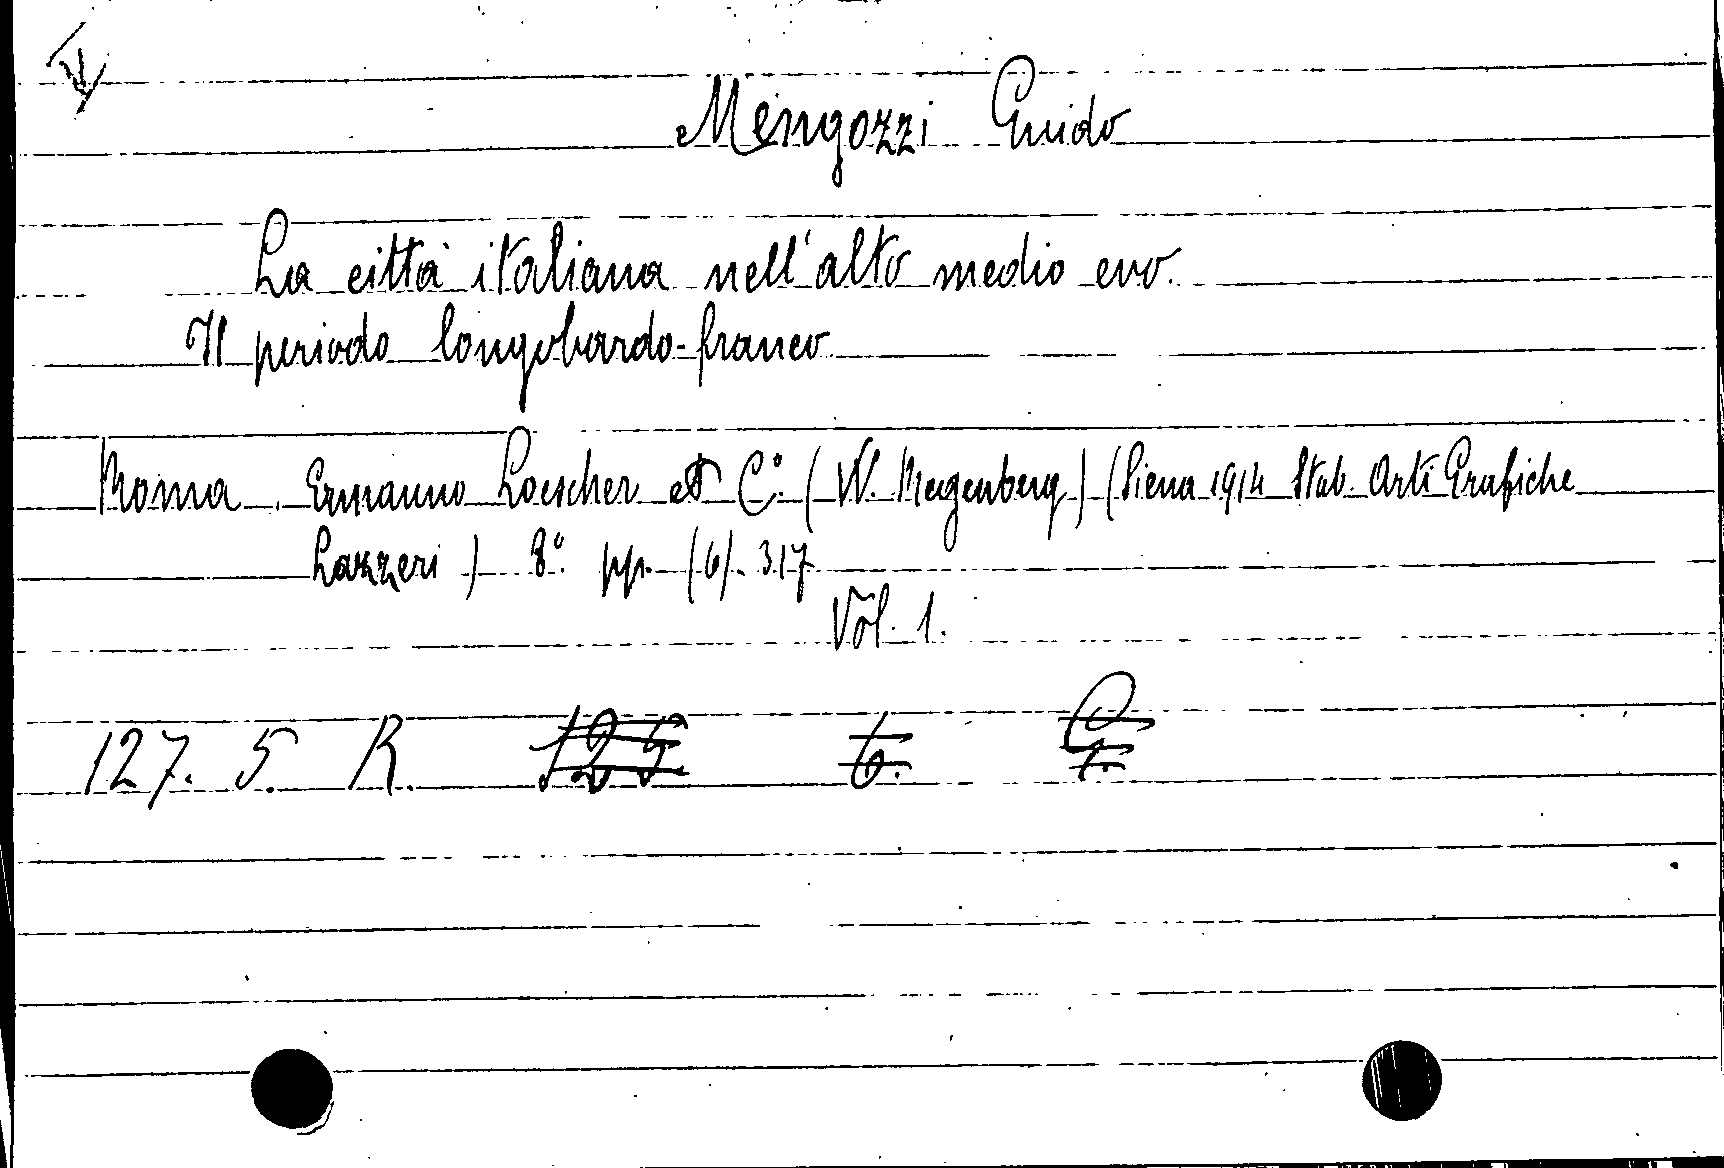 Mengozzi Guido
La città italiana nell'alto medio evo.
Il periodo longobardo-franco
Roma, Ermanno Loescher et C.° (W. Regenberg) (Siena 1914 Stab. Arti Grafiche
Lazzeri) 8.° pp. (6). 317
Vol. 1.
127. 5. R. 125. 6.